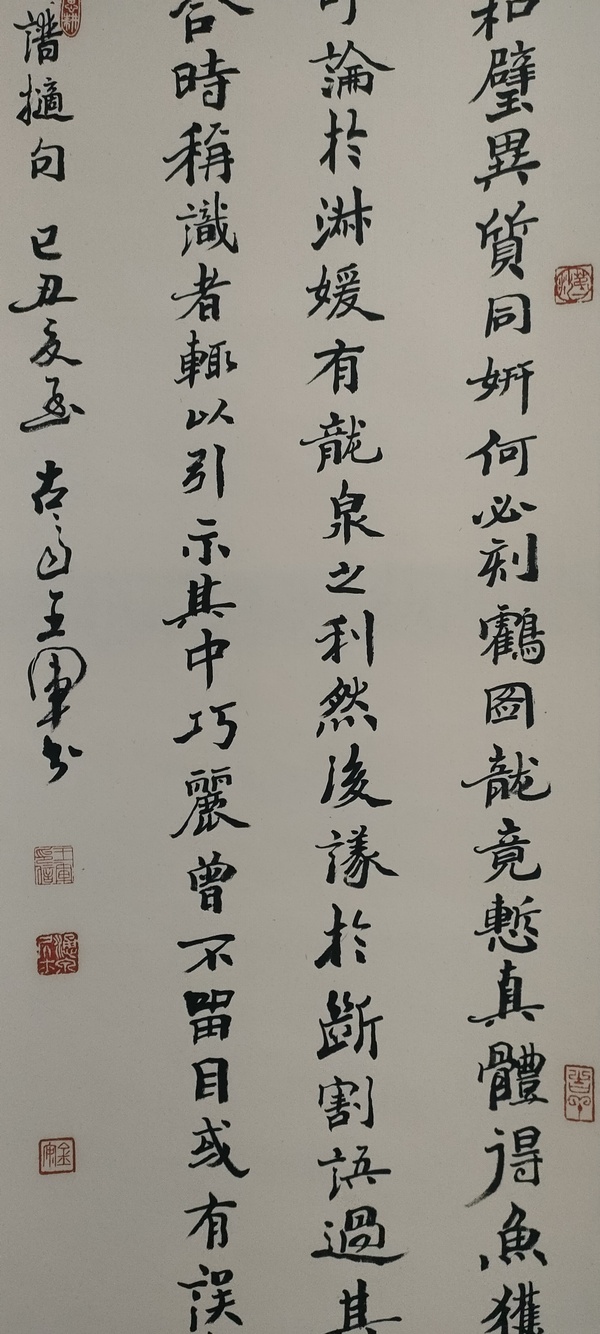 和璧異質同妍何必刻鶴圖龍竟慙真體得魚獲
可論於淋媛有龍泉之利然後議於斷割語過其
合時稱識者輒以引示其中巧麗曾不留目或有誤
譜摘句 己丑夏至 王軍书
王軍印信